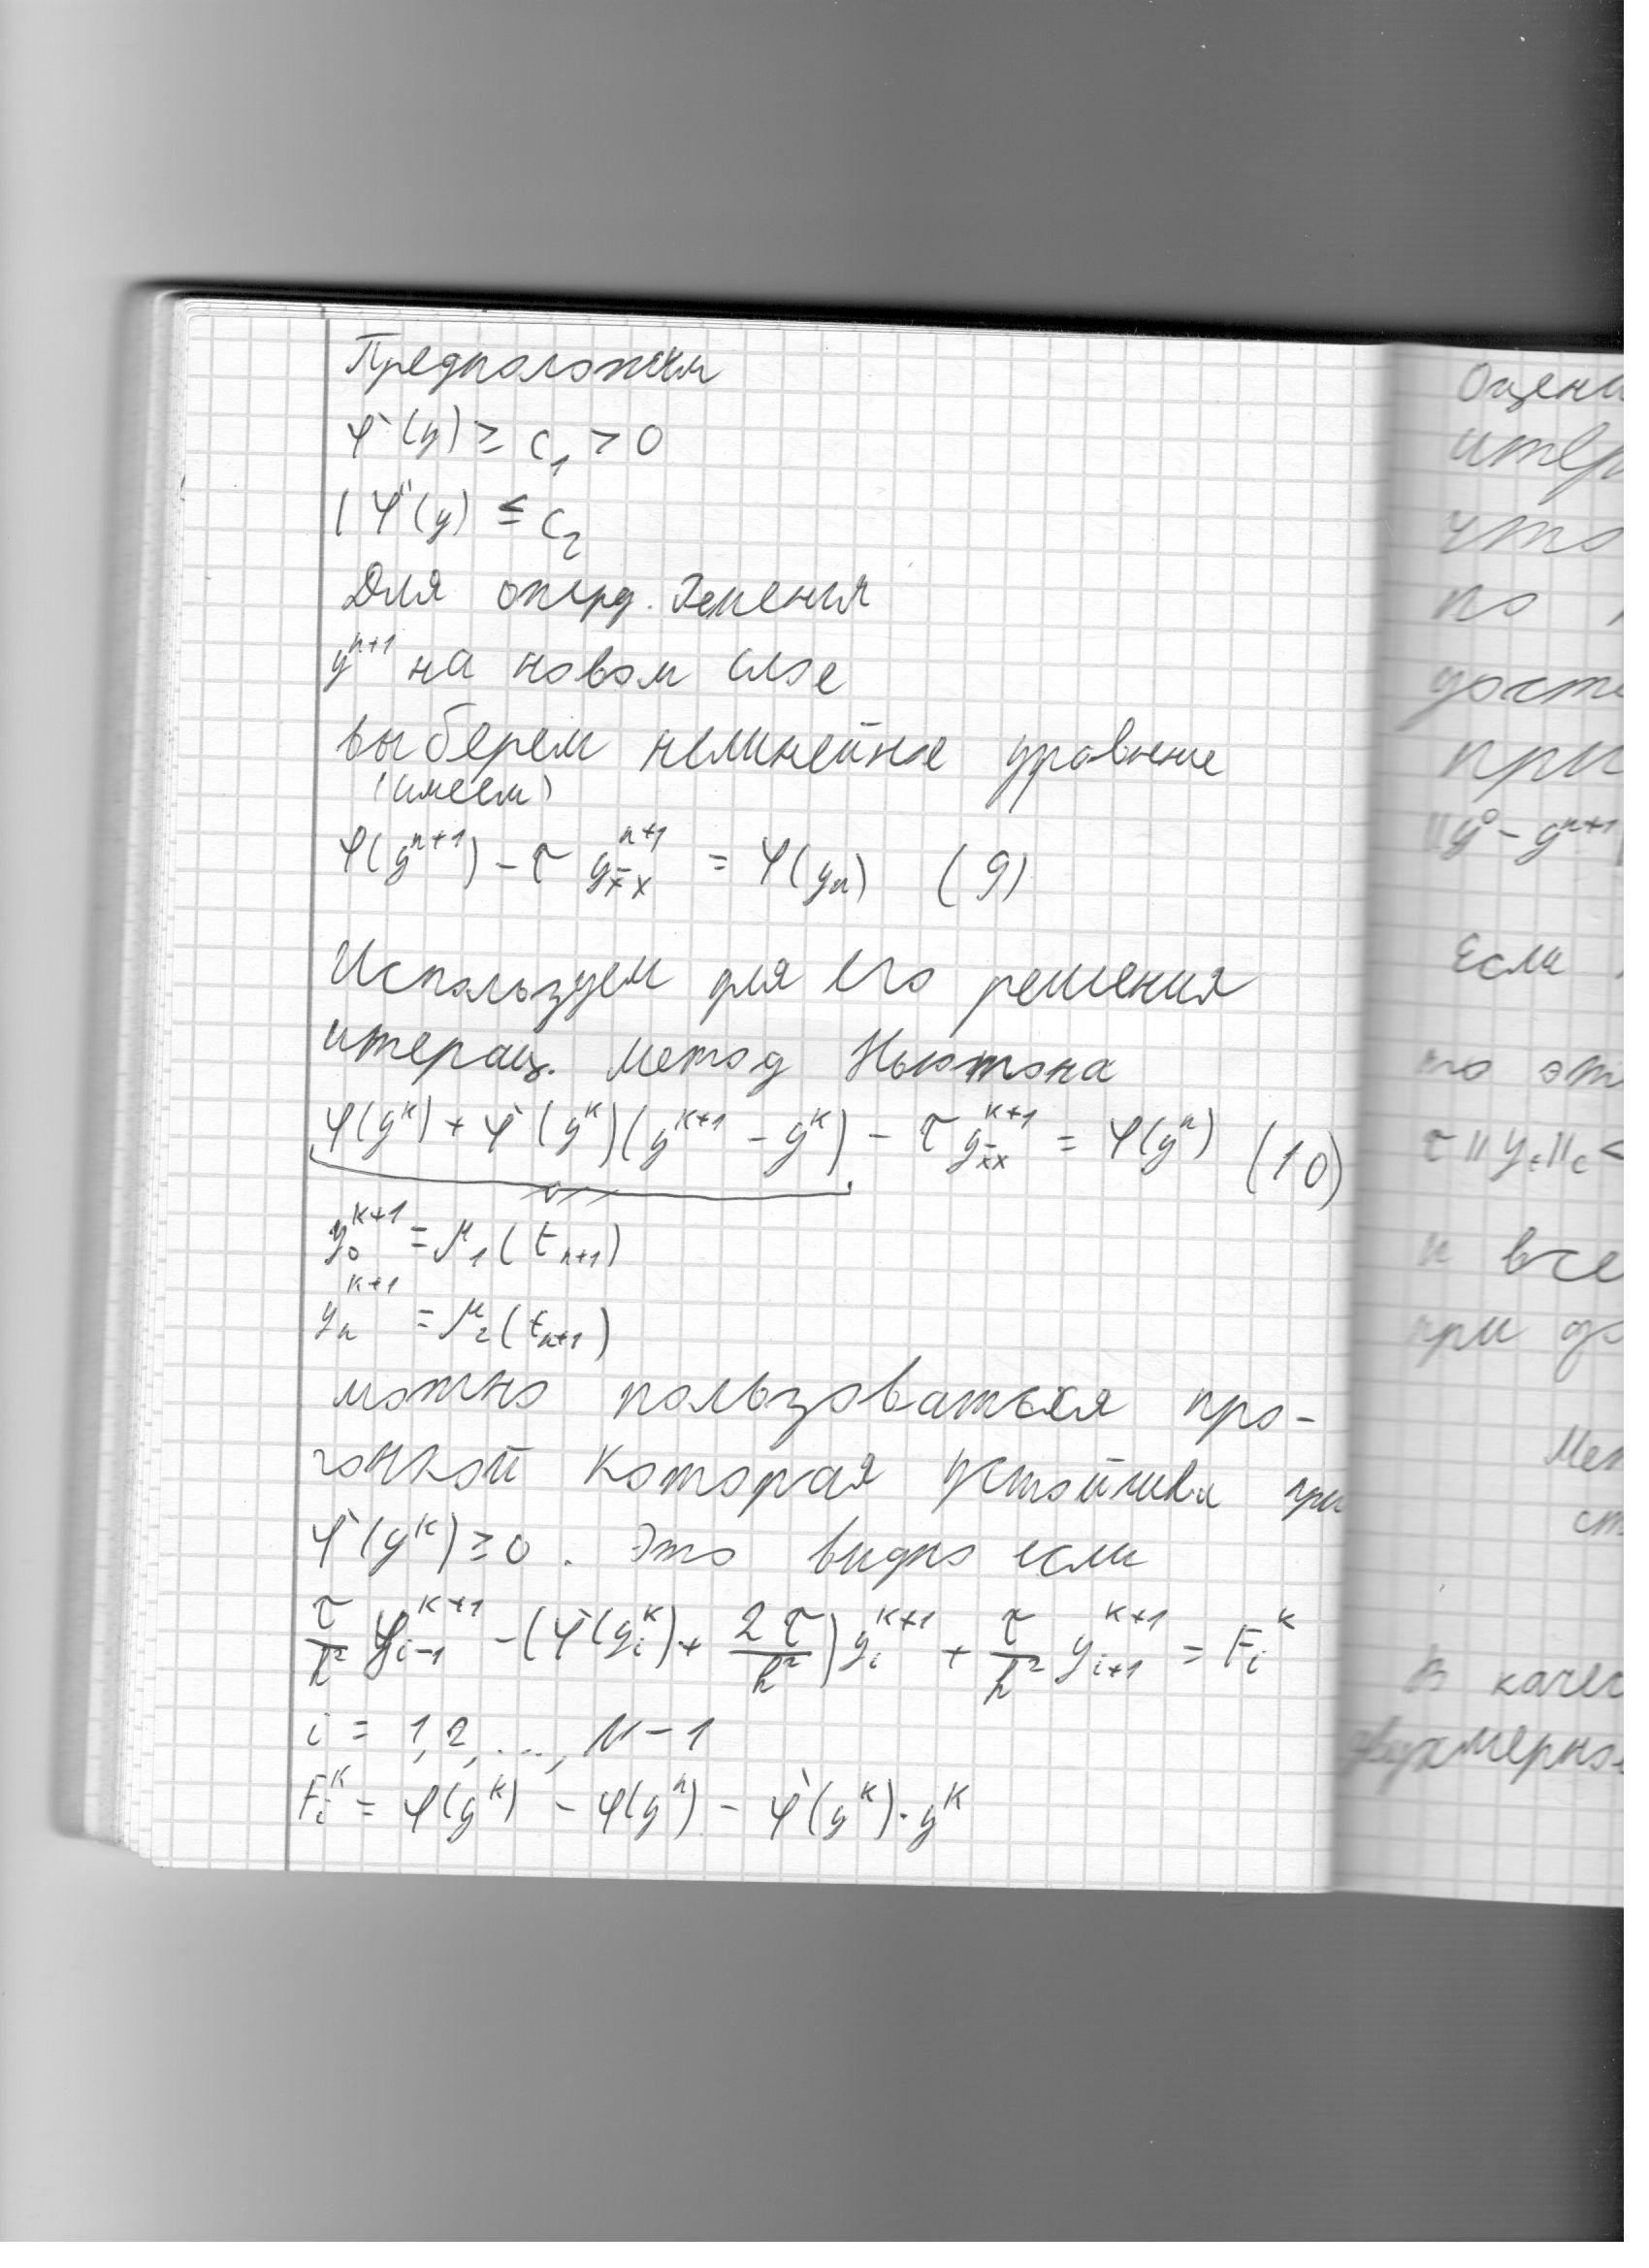 Предположим
φ'(y) ≥ c₁ > 0
|φ''(y) ≤ c₂
Для опред. решения
yⁿ⁺¹ на новом слое
выберем нелинейное уравнение
(имеем)
φ(yⁿ⁺¹) - τ yⁿ⁺¹_x̄x = φ(yₙ) (9)
Используем для его решения
итерац. метод Ньютона
φ(yᵏ) + φ'(yᵏ)(yᵏ⁺¹ - yᵏ) - τ yᵏ⁺¹_x̄x = φ(yⁿ) (10)
y₀ᵏ⁺¹ = μ₁(tₙ₊₁)
yₙᵏ⁺¹ = μ₂(tₙ₊₁)
можно пользоваться про-
гонкой которая устойчива при
φ'(yᵏ) ≥ 0. Это видно если
τ/h² yᵢ₋₁ᵏ⁺¹ - (φ'(yᵢᵏ) + 2τ/h²) yᵢᵏ⁺¹ + τ/h² yᵢ₊₁ᵏ⁺¹ = Fᵢᵏ
i = 1, 2, ..., N-1
Fᵢᵏ = φ(yᵏ) - φ(yⁿ) - φ'(yᵏ)·yᵏ
Оцени
итер
что
по
дост
при
||y⁰ - yⁿ⁺¹
Если
то эт
τ||yₜ||c <
и все
при до
Мет
ст
В качес
двухмерно